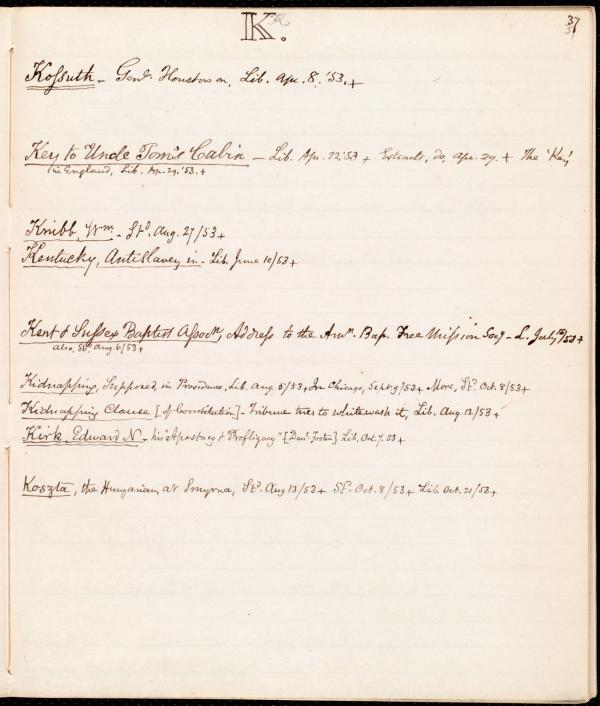 K.
37
Kossuth - Genl. Houston on, Lib. Apr. 8. '53.+
Key to Uncle Tom's Cabin - Lib. Apr. 22. '53 + Extracts, do, Apr. 29. + The 'Key'
in England, Lib. Apr. 29. '53. +
Knibb, Wm. - Std. Aug. 27/53 +
Kentucky, Antislavery in - Lib. June 10/53 +
Kent & Sussex Baptist Assocn., Address to the Amn. Bap. Free Mission Socy - L. July 15/53 +
also, Std. Aug. 6/53 +
Kidnapping, Supposed, in Providence, Lib. Aug. 5/53 + In Chicago, Sept. 9/53 + More, Std. Oct. 8/53 +
Kidnapping Clause [of Constitution] - Tribune tries to whitewash it, Lib. Aug. 12/53 +
Kirk, Edward N. - his "Apostacy & Profligacy" [Danl. Foster] Lib. Oct. 7. 53 +
Koszta, the Hungarian, at Smyrna, Std. Aug 13/53 + Std. Oct. 8/53 + Lib. Oct. 21/53 +